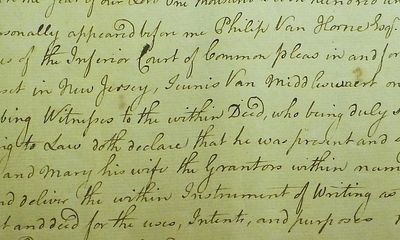 the year of our Lord One thousand seven hundred and
sonally appeared before me Philip Van Horne Esqr.
es of the Inferior Court of Common pleas in and for
set in New Jersey, Teunis Van Middleswart on
bing Witnesses to the within Deed, who being duly s
ng to Law doth declare that he was present and
and Mary his wife the Grantors within nam
nd deliver the within Instrument of Writing as
t and deed for the uses, Intents, and purposes